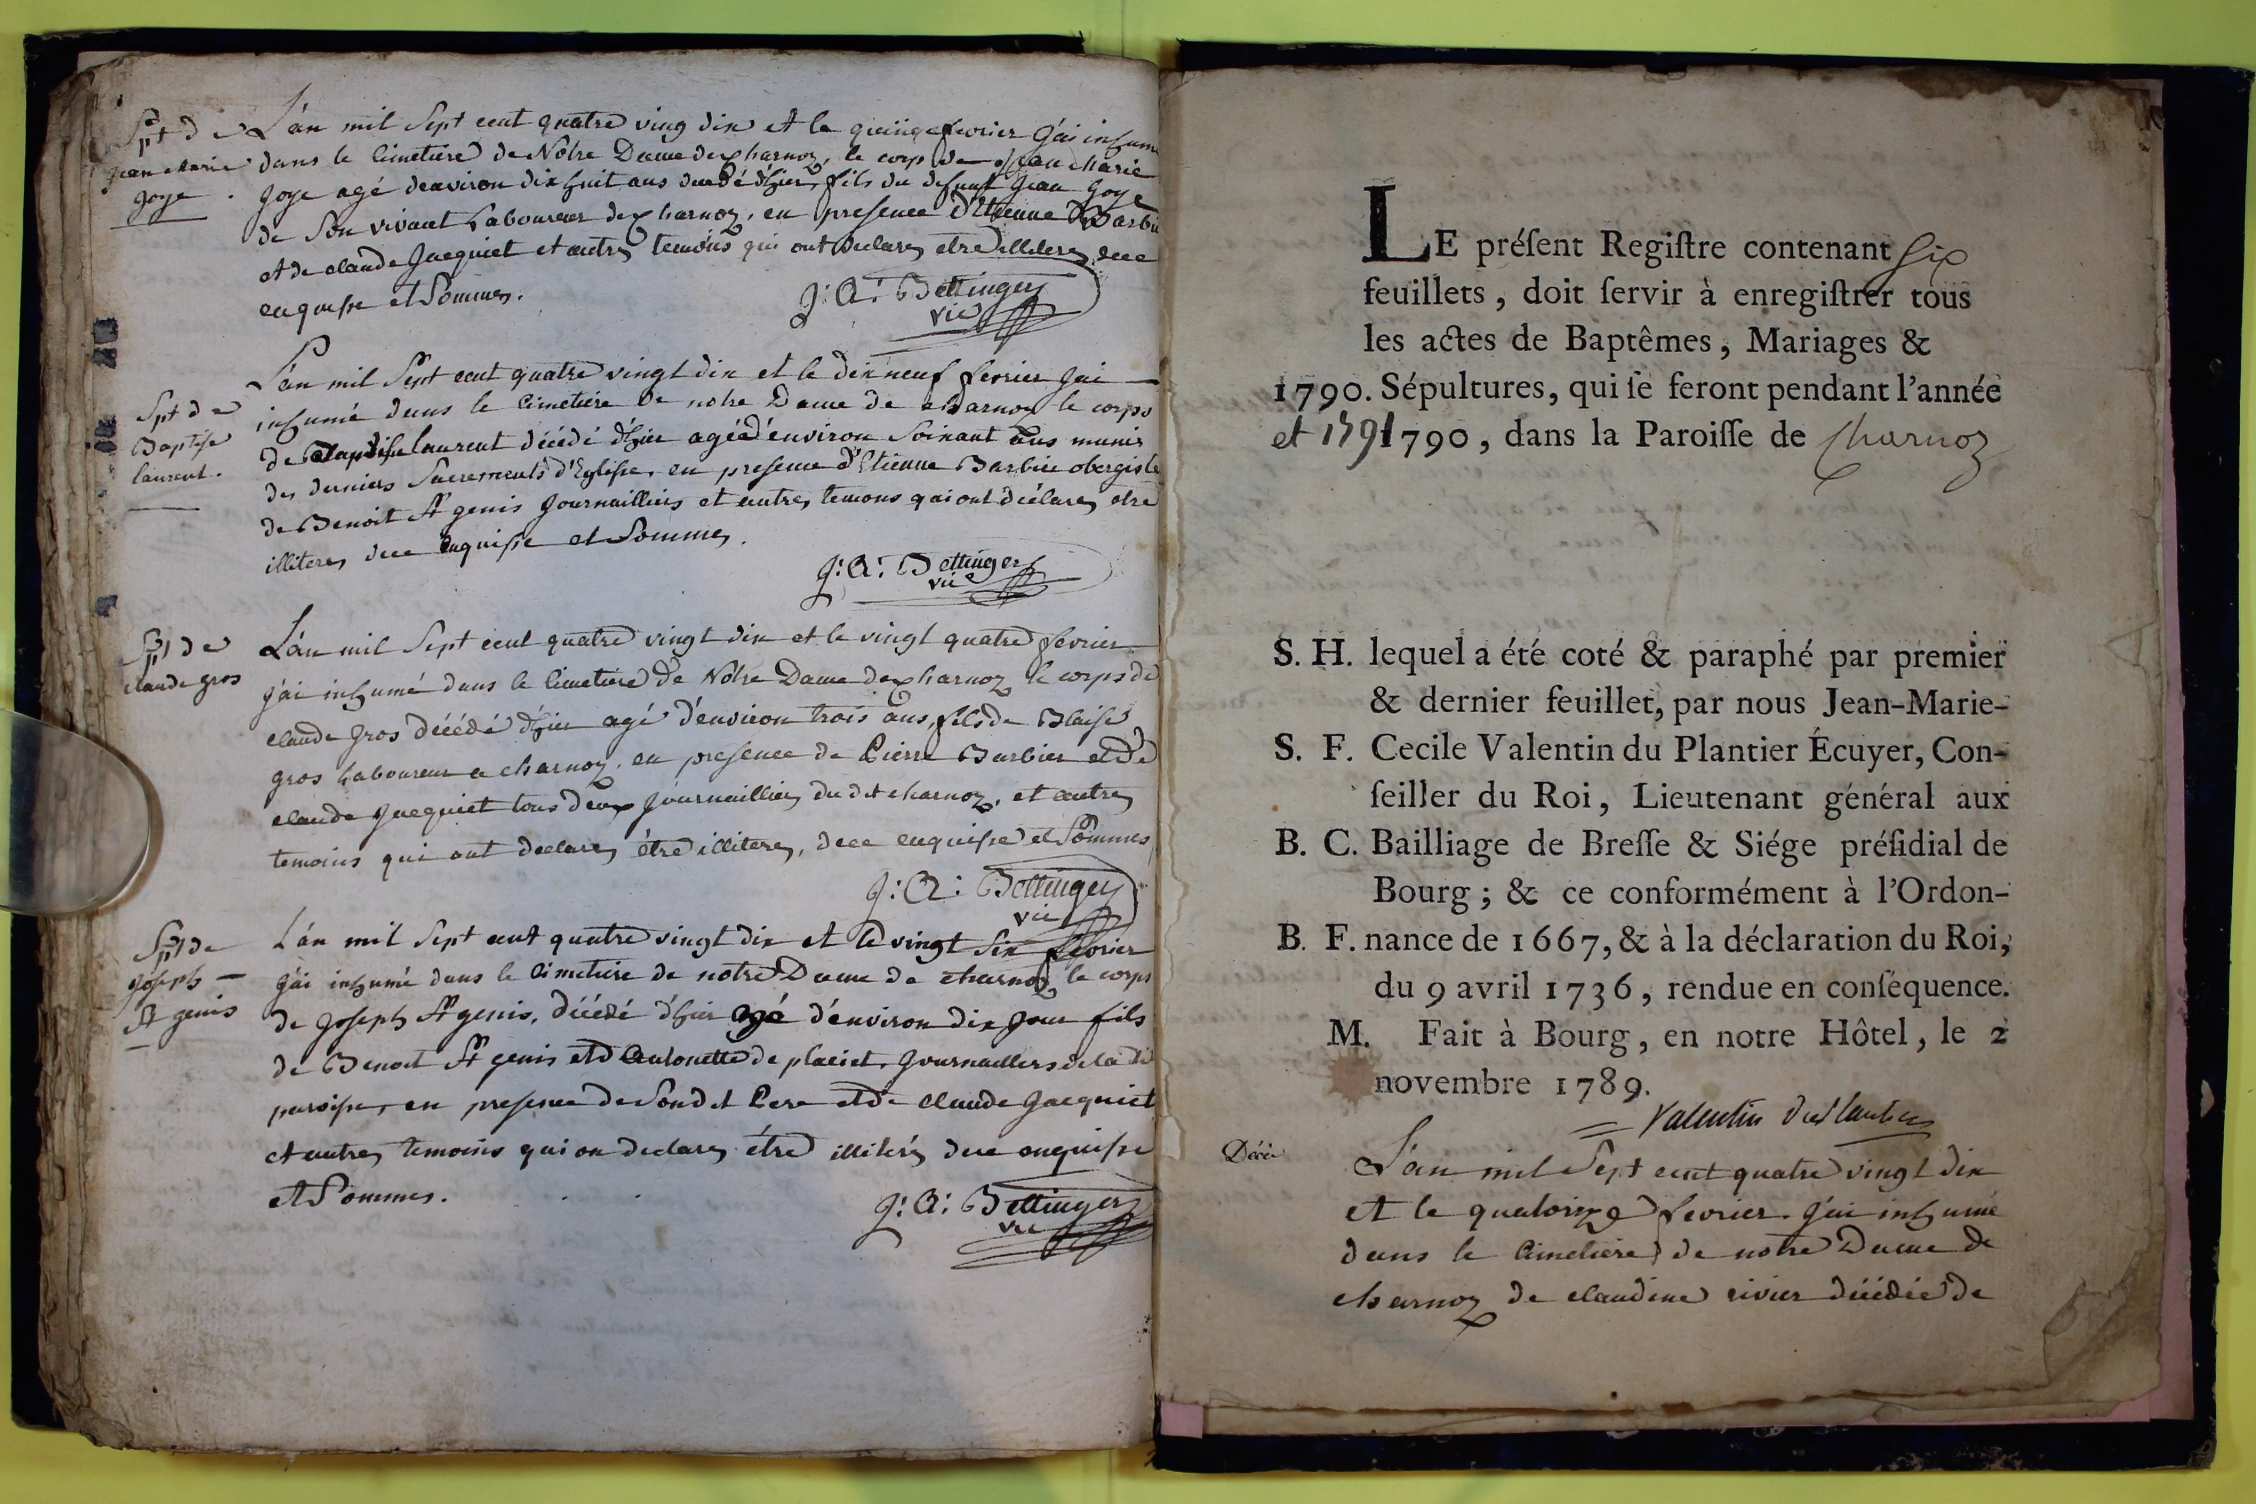 Spt de
jean marie
joye.
L'an mil Sept cent quatre ving dix et le quinze fevrier j'ai inhumé
dans le Cimetiere de Notre Dame de charnoz, le corp de jean marie
joye agé d'environ dix huit ans decedé d'hier, fils du defunt jean joye
de Son vivant Laboureur de charnoz, en presence d'Etienne Barbier
et de claude jacquiet et autres temoins qui ont declares etre illiteres, dece
enquisse et Sommes.
J: A: Bettinger
vic
Spt de
Baptiste
laurent.
L'an mil Sept cent quatre vingt dix et le dix neuf fevrier j'ai
inhumé dans le Cimetiere de notre Dame de charnoz le corps
de Baptiste laurent décédé d'hier agé d'environ Soixant ans munis
des derniers Sacrements d'Eglisse, en presence d'Etienne Barbier obergiste
de Benoit St genis journailliers et autres temons qui ont déclares etre
illiteres dece enquisse et Sommes.
J: A: Bettinger
vic
Spt de
claude gros
L'an mil Sept cent quatre vingt dix et le vingt quatre fevrier
j'ai inhumé dans le Cimetiere de Notre Dame de charnoz le corps de
claude gros décédé d'hier agé d'environ trois ans, fils de Blaise
gros Laboureur a charnoz, en presence de Pierre Barbier et de
claude jacquiet tous deux journaillier du dt charnoz, et autres
temoins qui ont declares être illiteres, dece enquisse et Sommes
J: A: Bettinger
vic
Spt de
joseph
St genis
L'an mil Sept cent quatre vingt dix et le vingt Six fevrier
j'ai inhumé dans le Cimetiere de notre Dame de charnoz le corps
de joseph St genis, décédé d'hier agé d'environ dix jour fils
de Benoit St genis et d'Antonette de placiet, journailliers de la dt
paroisse, en presence de Son dt Pere et de claude jacquiet
et autres temoins qui on declares être illiterés dece enquisse
et Sommes.
J: A: Bettinger
vic
LE préſent Regiſtre contenant Six
feuillets, doit ſervir à enregiſtrer tous
les actes de Baptêmes, Mariages &
1790. Sépultures, qui ſe feront pendant l'année
et 1791 1790, dans la Paroiſſe de Charnoz
S. H. lequel a été coté & paraphé par premier
& dernier feuillet, par nous Jean-Marie-
S. F. Cecile Valentin du Plantier Écuyer, Con-
ſeiller du Roi, Lieutenant général aux
B. C. Bailliage de Breſſe & Siége préſidial de
Bourg; & ce conformément à l'Ordon-
B. F. nance de 1667, & à la déclaration du Roi,
du 9 avril 1736, rendue en conſéquence.
M. Fait à Bourg, en notre Hôtel, le 2
novembre 1789.
Valentin duplantier
Décès
L'an mil Sept cent quatre vingt dix
et le quatorze fevrier. j'ai inhumé
dans le Cimetiere de notre Dame de
charnoz de claudine rivier décédée de